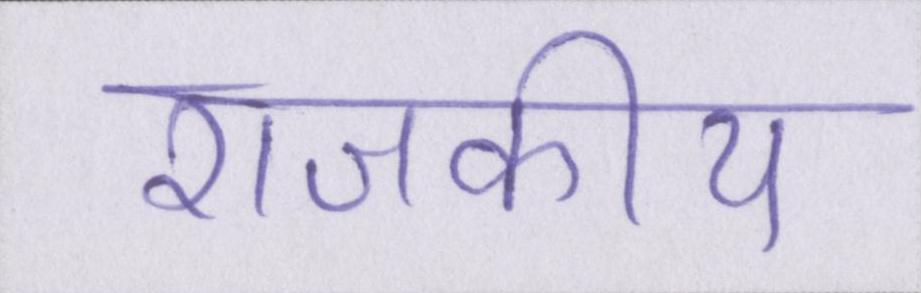 राजकीय